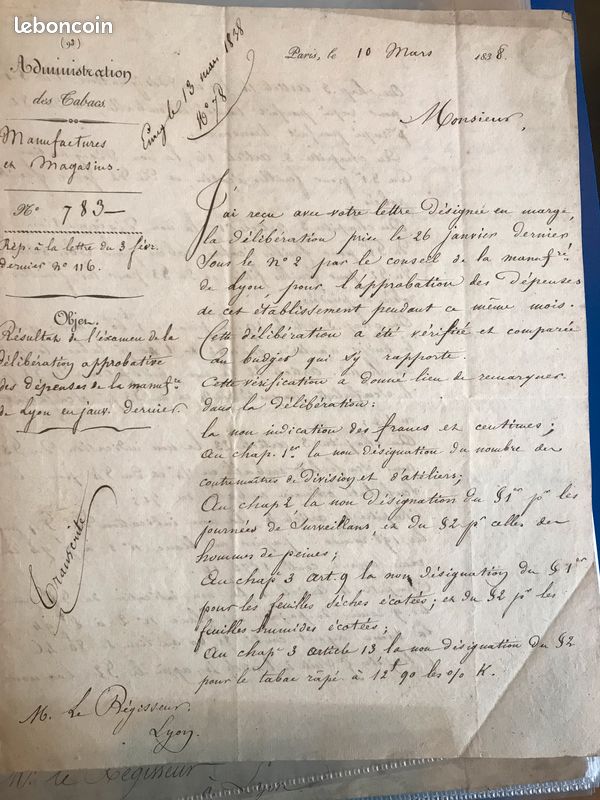 leboncoin
(92)
Administration
des Tabacs
Manufactures
et Magasins.
N° 783
Rép. à la lettre du 3 févr.
dernier N° 116.
Objet.
Résultat de l'éxamen de la
délibération approbative
des dépenses de la manuf.re
de Lyon en janv. dernier.
Transcrite
M. Le Régisseur.
Lyon.
le 13 mars 1838
N° 78
Paris, le 10 Mars 1838.
Monsieur,
J'ai reçu avec votre lettre désignée en marge,
la délibération prise le 26 janvier dernier
sous le N° 2 par le conseil de la manuf.re
de Lyon, pour l'approbation des dépenses
de cet établissement pendant ce même mois.
Cette délibération a été vérifiée et comparée
au budget qui s'y rapporte.
Cette vérification a donné lieu de remarquer
dans la délibération:
la non indication des francs et centimes;
Au chap. 1er la non désignation du nombre des
contremaîtres de division et d'atéliers;
Au chap 2 la non désignation du § 1er pr les
journées de surveillans, et du §2 pr celles des
hommes de peines;
Au chap.e 3 art. 9 la non désignation du § 1er
pour les feuilles sèches écotées; et du §2 pr les
feuilles humides écotées;
Au chap.e 3 article 13 la non désignation du §2
pour le tabac râpé à 12f 90 les % K.
M. le Régisseur
à Lyon